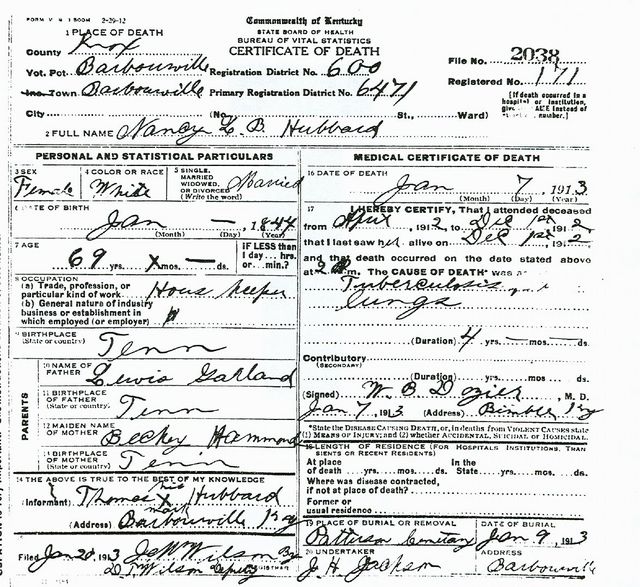 FORM V. S. 1 500M 2-29-12
Commonwealth of Kentucky
STATE BOARD OF HEALTH
BUREAU OF VITAL STATISTICS
CERTIFICATE OF DEATH
1 PLACE OF DEATH
County Knox
Vot. Pct. Barbourville Registration District No. 600
File No. 2038
Inc. Town Barbourville Primary Registration District No. 6471
Registered No. 171
City (No. St., Ward)
[If death occurred in a hospital or institution, give NAME instead of number.]
2 FULL NAME Nancy E. B. Hubbard
PERSONAL AND STATISTICAL PARTICULARS
3 SEX Female
4 COLOR OR RACE White
5 SINGLE, MARRIED, WIDOWED, OR DIVORCED (Write the word) Married
6 DATE OF BIRTH
Jan — , 1844
(Month) (Day) (Year)
7 AGE
69 yrs. X mos. — ds.
IF LESS than 1 day... hrs. or... min.?
8 OCCUPATION
(a) Trade, profession, or particular kind of work House keeper
(b) General nature of industry business or establishment in which employed (or employer)
9 BIRTHPLACE
(State or country) Tenn
PARENTS
10 NAME OF FATHER Lewis Garland
11 BIRTHPLACE OF FATHER (State or country) Tenn
12 MAIDEN NAME OF MOTHER Beckey Hammond
13 BIRTHPLACE OF MOTHER (State or country) Tenn
14 THE ABOVE IS TRUE TO THE BEST OF MY KNOWLEDGE
(Informant) Thomas his X mark Hubbard
(Address) Barbourville Ky
Filed Jan 20 1913 Wilson
Wilson Deputy REGISTRAR
MEDICAL CERTIFICATE OF DEATH
16 DATE OF DEATH
Jan 7, 1913
(Month) (Day) (Year)
17 I HEREBY CERTIFY, That I attended deceased
from April, 1912 to Dec 1st 1912
that I last saw her alive on Dec 1st 1912
and that death occurred on the date stated above
at 2 m. The CAUSE OF DEATH* was as
Tuberculosis
lungs
(Duration) 4 yrs. — mos. — ds.
Contributory
(SECONDARY)
(Duration) yrs. mos. ds.
(Signed) W. B. Dozier, M. D.
Jan 7, 1913 (Address) Bimble Ky
*State the DISEASE CAUSING DEATH, or, in deaths from VIOLENT CAUSES state (1) MEANS OF INJURY; and (2) whether ACCIDENTAL, SUICIDAL OR HOMICIDAL.
18 LENGTH OF RESIDENCE (FOR HOSPITALS, INSTITUTIONS, TRANSIENTS OR RECENT RESIDENTS)
At place of death yrs. mos. ds. In the State yrs. mos. ds.
Where was disease contracted, if not at place of death?
Former or usual residence
19 PLACE OF BURIAL OR REMOVAL
Patterson Cemetary
DATE OF BURIAL
Jan 9, 1913
20 UNDERTAKER
J H Jackson
ADDRESS
Barbourville